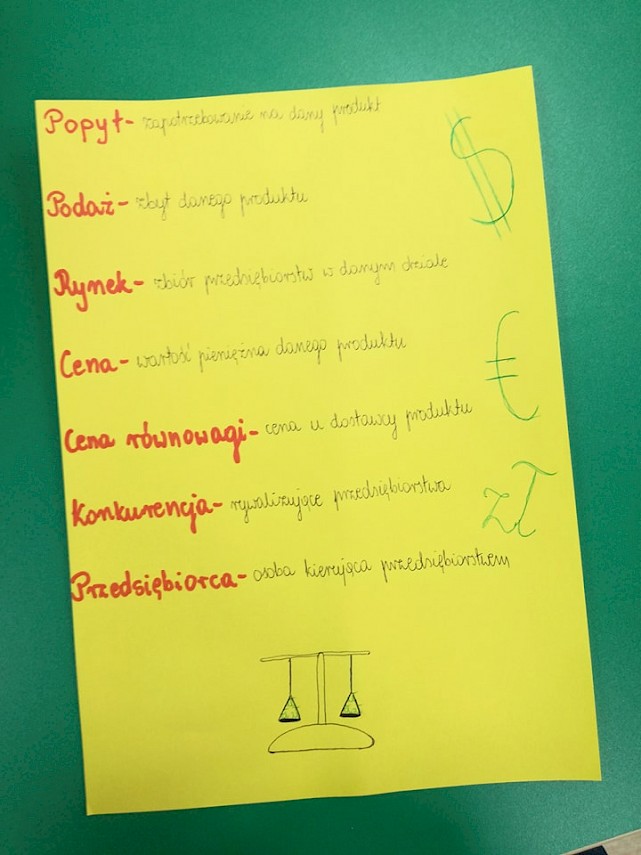 Popyt- zapotrzebowanie na dany produkt
$
Podaż- zbyt danego produktu
Rynek- zbiór przedsiębiorstw w danym dziale
€
Cena- wartość pieniężna danego produktu
Cena równowagi- cena u dostawcy produktu
Konkurencja- rywalizujące przedsiębiorstwa
zł
Przedsiębiorca- osoba kierująca przedsiębiorstwem